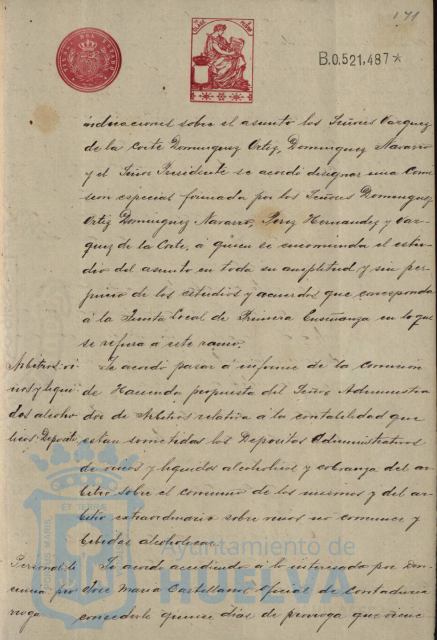 171
B.0.521,487*
indicaciones sobre el asunto los Señores Vazquez
de la Corte Dominguez Ortiz, Dominguez Navarro
y el Señor Presidente se acordó designar una Comi
sion especial formada por los Señores Dominguez
Ortiz Dominguez Navarro, Perez Hernandez y Vaz-
quez de la Corte, á quien se encomienda el estu-
dio del asunto en toda su amplitud y sin per-
juicio de los estudios y acuerdos que corresponda
á la Junta Local de Primera Enseñanza en lo que
se refiera á este ramo.
Arbitros vi
nos y liqui
dos alcoho
licos Deposito
Se acordó pasar á informe de la comision
de Hacienda propuesta del Señor Administra
dor de Arbitrios relativa á la contabilidad que
estan sometidas los Depositos Administrativos
de vinos y liquidos alcoholicos y cobranza del ar-
bitrio sobre el consumo de los mismos y del ar-
bitrio extraordinario sobre vinos no comunes y
bebidas alcoholicas.
Personal
rroga
Se acordó accediendo á lo interesado por Don
José Maria Castellano, Oficial de Contaduria
concederle quince dias de prorroga que viene
PORTUS MARIS
Ayuntamiento de
HUELVA